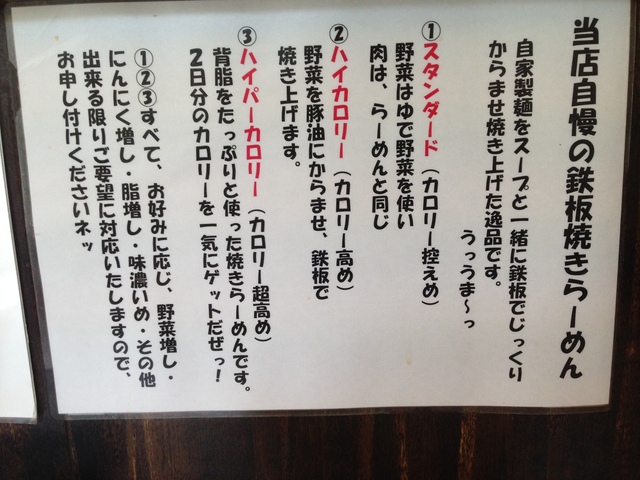 当店自慢の鉄板焼きらーめん
自家製麺をスープと一緒に鉄板でじっくり
からませ焼き上げた逸品です。
うっうま～っ
①スタンダード（カロリー控えめ）
野菜はゆで野菜を使い
肉は、らーめんと同じ
②ハイカロリー（カロリー高め）
野菜を豚油にからませ、鉄板で
焼き上げます。
③ハイパーカロリー（カロリー超高め）
背脂をたっぷりと使った焼きらーめんです。
2日分のカロリーを一気にゲットだぜっ！
①②③すべて、お好みに応じ、野菜増し・
にんにく増し・脂増し・味濃いめ・その他
出来る限りご要望に対応いたしますので、
お申し付けくださいネッ